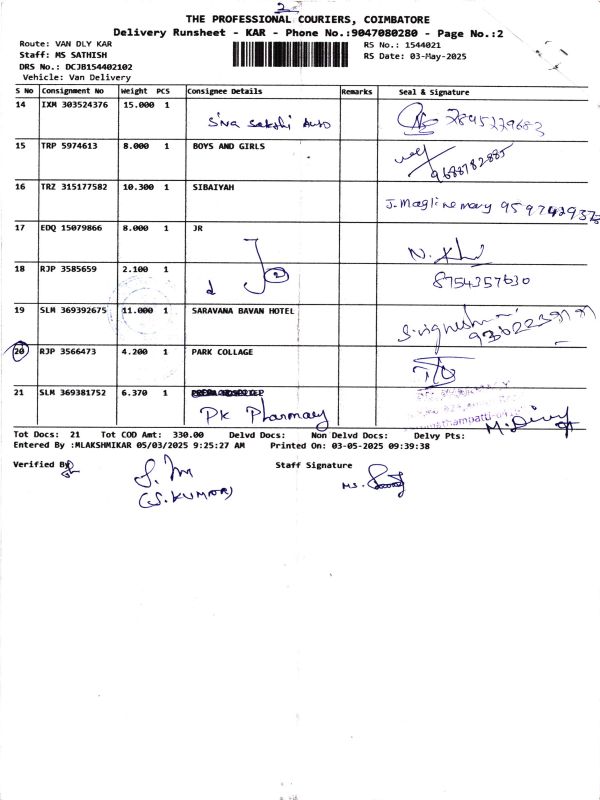 2
THE PROFESSIONAL COURIERS, COIMBATORE
Delivery Runsheet - KAR - Phone No.:9047080280 - Page No.:2
Route: VAN DLY KAR
Staff: MS SATHISH
DRS No.: DCJB154402102
Vehicle: Van Delivery
RS No.: 1544021
RS Date: 03-May-2025
S No Consignment No Weight PCS Consignee Details Remarks Seal & Signature
14 IXM 303524376 15.000 1 Siva Sakthi Auto
15 TRP 5974613 8.000 1 BOYS AND GIRLS 9688782885
16 TRZ 315177582 10.300 1 SIBAIYAH J. Magline mary
17 EDQ 15079866 8.000 1 JR
18 RJP 3585659 2.100 1 2 8754357630
19 SLM 369392675 11.000 1 SARAVANA BAVAN HOTEL
20 RJP 3566473 4.200 1 PARK COLLAGE
21 SLM 369381752 6.370 1 PK Pharmacy
Tot Docs: 21 Tot COD Amt: 330.00 Delvd Docs: Non Delvd Docs: Delvy Pts:
Entered By :MLAKSHMIKAR 05/03/2025 9:25:27 AM Printed On: 03-05-2025 09:39:38
Verified By (S. KUMAR) Staff Signature